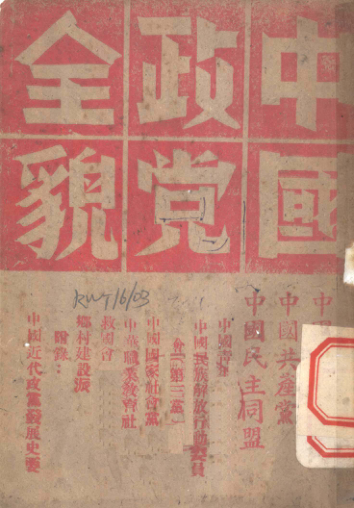 中國
政党
全貌
中國共產黨
中國民主同盟
中國青
中國民族解放行動委員
會「第三黨」
中國國家社會黨
中華職業教育社
救國會
鄉村建設派
附錄：
中國近代政黨發展史要